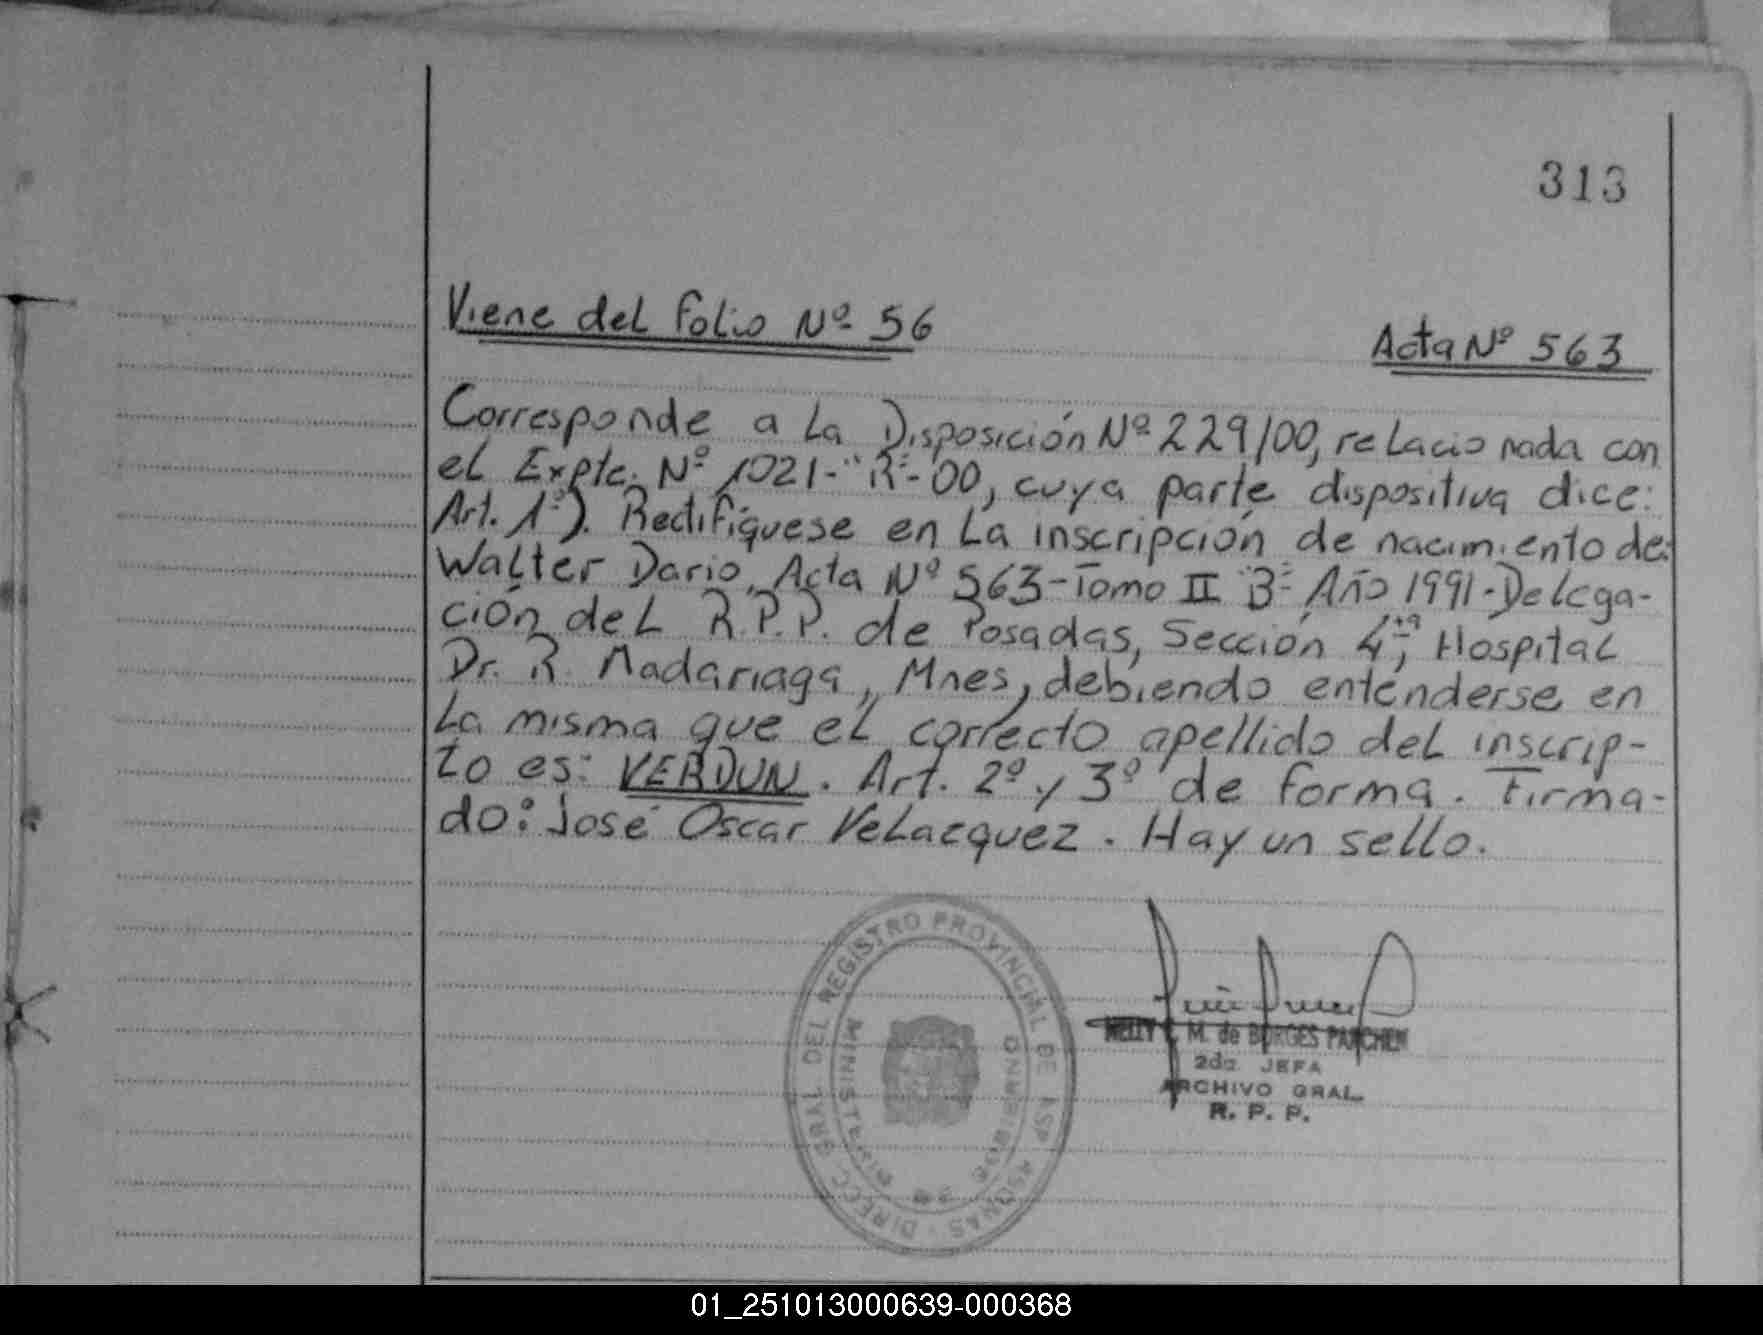 313
Viene del Folio Nº 56
Acta Nº 563
Corresponde a La Disposición Nº 229/00, relacionada con
el Expte. Nº 1021-"R"-00, cuya parte dispositiva dice:
Art. 1º). Rectifíquese en La inscripción de nacimiento de:
Walter Dario, Acta Nº 563-Tomo II "B" Año 1991-Delega-
ción del R.P.P. de Posadas, Sección 4ta, Hospital
Dr. R. Madariaga, Mnes, debiendo entenderse en
La misma que el correcto apellido del inscrip-
to es: VERDUN. Art. 2º y 3º de forma. Firma-
do: José Oscar Velazquez. Hay un sello.
DIRECC. GRAL. DEL REGISTRO PROVINCIAL DE
MINISTERIO DE GOBIERNO
NELLY M. de BORGES PARCHEN
2da. JEFA
ARCHIVO GRAL.
R. P. P.
01_251013000639-000368